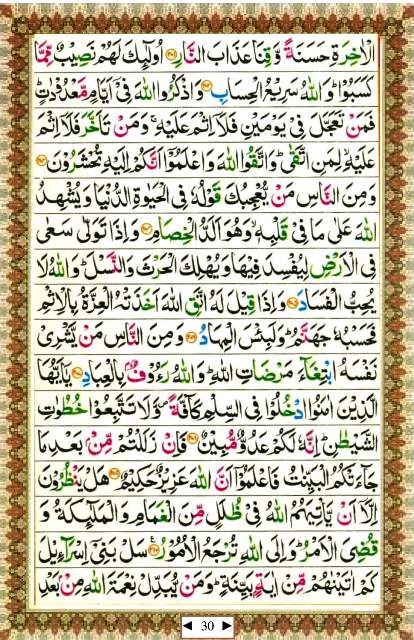 الْاٰخِرَةِ حَسَنَةً وَّقِنَا عَذَابَ النَّارِ ۝ اُولٰٓئِكَ لَهُمْ نَصِيْبٌ مِّمَّا
كَسَبُوْا ؕ وَاللّٰهُ سَرِيْعُ الْحِسَابِ ۝ وَاذْكُرُوا اللّٰهَ فِىْٓ اَيَّامٍ مَّعْدُوْدٰتٍ ؕ
فَمَنْ تَعَجَّلَ فِىْ يَوْمَيْنِ فَلَاۤ اِثْمَ عَلَيْهِ ۚ وَمَنْ تَاَخَّرَ فَلَاۤ اِثْمَ
عَلَيْهِ ۙ لِمَنِ اتَّقٰى ؕ وَاتَّقُوا اللّٰهَ وَاعْلَمُوْۤا اَنَّكُمْ اِلَيْهِ تُحْشَرُوْنَ ۝
وَمِنَ النَّاسِ مَنْ يُّعْجِبُكَ قَوْلُهٗ فِى الْحَيٰوةِ الدُّنْيَا وَيُشْهِدُ
اللّٰهَ عَلٰى مَا فِىْ قَلْبِهٖ ۙ وَهُوَ اَلَدُّ الْخِصَامِ ۝ وَاِذَا تَوَلّٰى سَعٰى
فِى الْاَرْضِ لِيُفْسِدَ فِيْهَا وَيُهْلِكَ الْحَرْثَ وَالنَّسْلَ ؕ وَاللّٰهُ لَا
يُحِبُّ الْفَسَادَ ۝ وَاِذَا قِيْلَ لَهُ اتَّقِ اللّٰهَ اَخَذَتْهُ الْعِزَّةُ بِالْاِثْمِ
فَحَسْبُهٗ جَهَنَّمُ ؕ وَلَبِئْسَ الْمِهَادُ ۝ وَمِنَ النَّاسِ مَنْ يَّشْرِىْ
نَفْسَهُ ابْتِغَآءَ مَرْضَاتِ اللّٰهِ ؕ وَاللّٰهُ رَءُوْفٌۢ بِالْعِبَادِ ۝ يٰۤاَيُّهَا
الَّذِيْنَ اٰمَنُوا ادْخُلُوْا فِى السِّلْمِ كَآفَّةً ۪ وَّلَا تَتَّبِعُوْا خُطُوٰتِ
الشَّيْطٰنِ ؕ اِنَّهٗ لَكُمْ عَدُوٌّ مُّبِيْنٌ ۝ فَاِنْ زَلَلْتُمْ مِّنْۢ بَعْدِ مَا
جَآءَتْكُمُ الْبَيِّنٰتُ فَاعْلَمُوْۤا اَنَّ اللّٰهَ عَزِيْزٌ حَكِيْمٌ ۝ هَلْ يَنْظُرُوْنَ
اِلَّاۤ اَنْ يَّاْتِيَهُمُ اللّٰهُ فِىْ ظُلَلٍ مِّنَ الْغَمَامِ وَالْمَلٰٓئِكَةُ وَ
قُضِىَ الْاَمْرُ ؕ وَاِلَى اللّٰهِ تُرْجَعُ الْاُمُوْرُ ۝ سَلْ بَنِىْۤ اِسْرَآءِيْلَ
كَمْ اٰتَيْنٰهُمْ مِّنْ اٰيَةٍۭ بَيِّنَةٍ ؕ وَمَنْ يُّبَدِّلْ نِعْمَةَ اللّٰهِ مِنْۢ بَعْدِ
◄ 30 ►